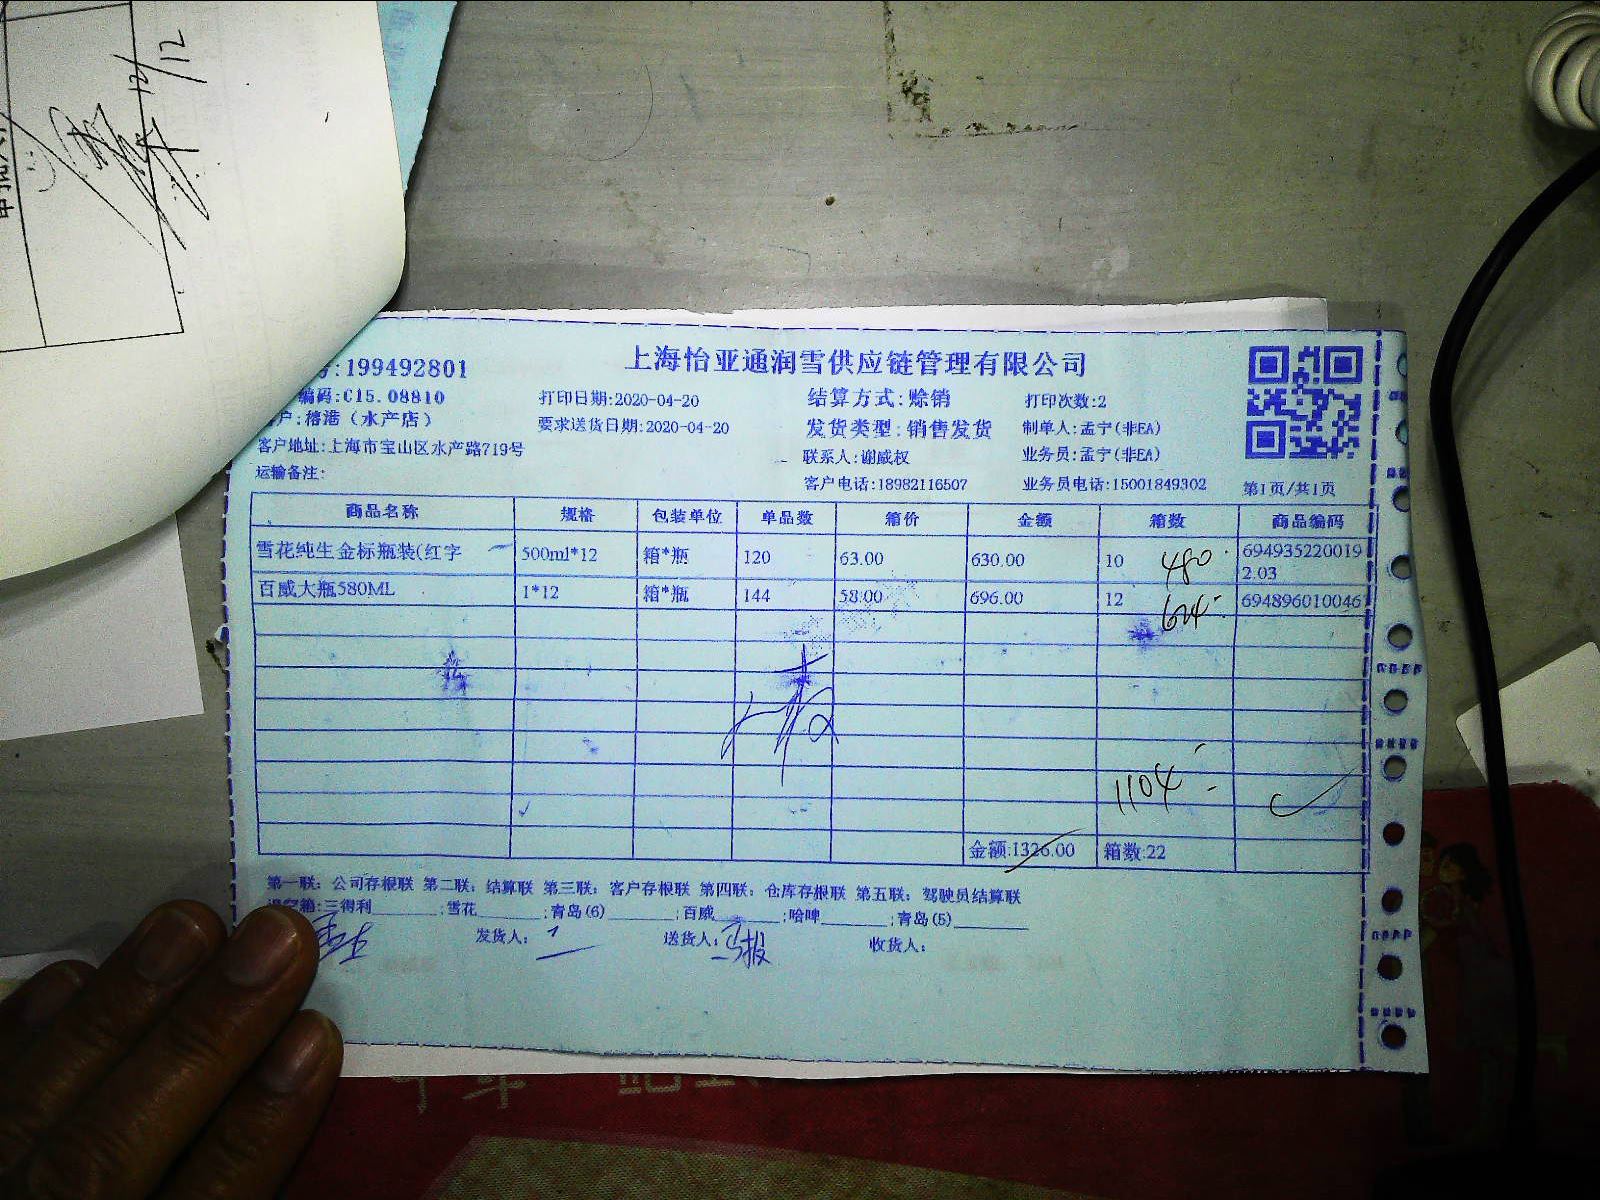 10/12
上海怡亚通润雪供应链管理有限公司
:199492801
编码:C15.08810 打印日期:2020-04-20 结算方式:赊销 打印次数:2
户:榕港（水产店） 要求送货日期:2020-04-20 发货类型:销售发货 制单人:孟宁(非EA)
客户地址:上海市宝山区水产路719号 联系人:谢威权 业务员:孟宁(非EA)
运输备注: 客户电话:18982116507 业务员电话:15001849302 第1页/共1页
商品名称 规格 包装单位 单品数 箱价 金额 箱数 商品编码
雪花纯生金标瓶装(红字 500ml*12 箱*瓶 120 63.00 630.00 10 480 694935220019
2.03
百威大瓶580ML 1*12 箱*瓶 144 58.00 696.00 12 624 694896010046
1104
金额:1326.00 箱数:22
第一联：公司存根联 第二联：结算联 第三联：客户存根联 第四联：仓库存根联 第五联：驾驶员结算联
退空箱:三得利______;雪花______;青岛(6)______;百威______;哈啤______;青岛(5)______
发货人: 送货人: 收货人: